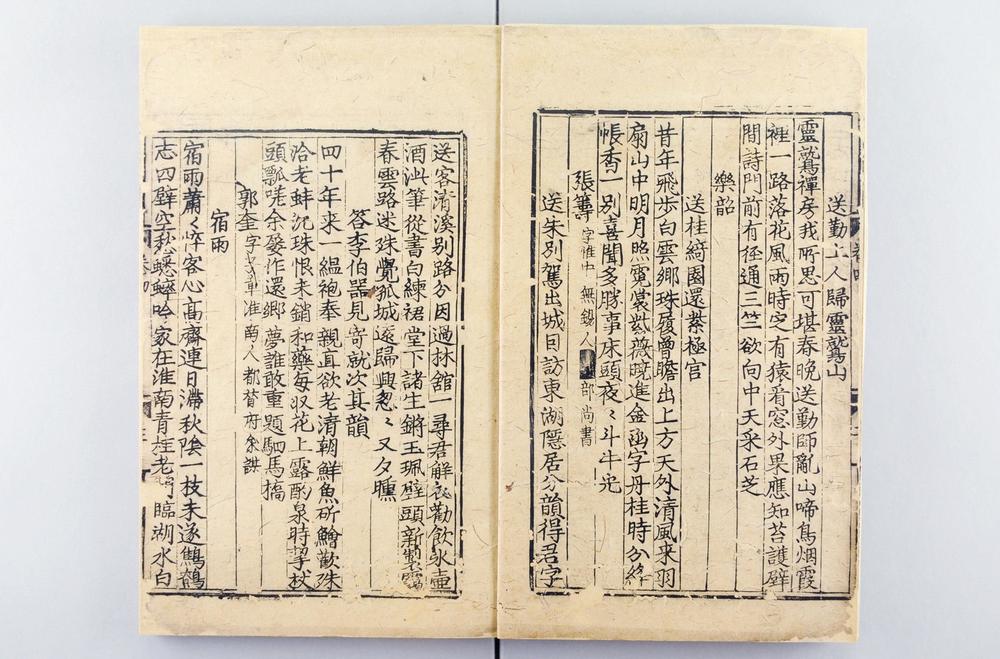 送勤上人歸靈鷲山
靈鷲禪房我所思可堪春晚送勤師亂山啼鳥烟霞
裡一路落花風雨時定有猿看窓外果應知苔護壁
間詩門前有徑通三竺欲向中天采石芝
樂韶
送桂綺園還紫極宮
昔年飛步白雲鄉珠履曾瞻出上方天外清風來羽
扇山中明月照霓裳紫薇曉進金函字丹桂時分絳
帳香一別喜聞多勝事床頭夜々斗牛光
張籌 字惟中 無錫人 部尚書
送朱別駕出城因訪東湖隱居分韻得君字
送客清溪別路分因過林館一尋君解衣勸飲氷壺
酒泚筆從書白練裙堂下諸生鏘玉珮壁頭新製
春雲路迷殊覺孤城遠歸興怱々又夕曛
答李伯噐見寄就次其韻
四十年來一緼袍奉親直欲老清朝鮮魚斫鱠歡殊
洽老蚌沉珠恨未銷和藥每収花上露酌泉時挈杖
頭瓢嗟余發作還鄉夢誰敢重題駟馬橋
郭奎 字子章淮南人都督府叅謀
宿雨
宿雨蕭々悴客心高齋連日滯秋陰一枝未遂鷦鷯
志四壁空愁蟋蟀吟家在淮南青桂老門臨湖水白